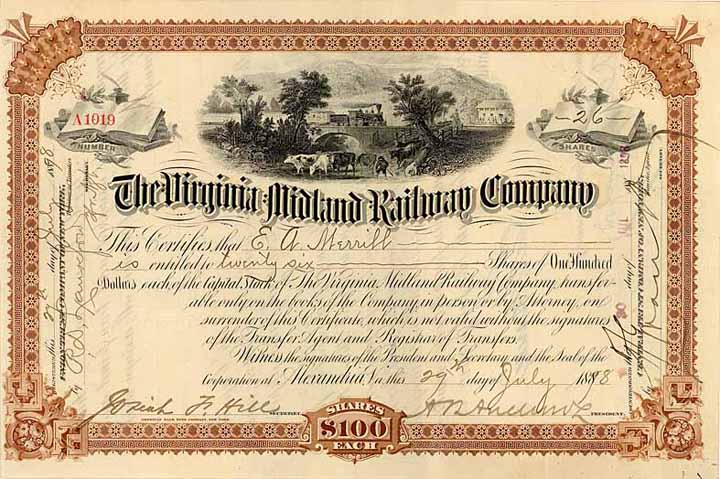 A1019
NUMBER
-26-
SHARES
The Virginia Midland Railway Company
This Certifies that E. A. Merrill
is entitled to twenty six Shares of One Hundred
Dollars each of the Capital Stock of The Virginia Midland Railway Company, transfer-
able only on the books of the Company, in person or by Attorney, on
surrender of this Certificate, which is not valid without the signatures
of the Transfer Agent and Registrar of Transfers.
Witness the signatures of the President and Secretary, and the Seal of the
Corporation at Alexandria, Va. this 29th day of July 1898
Josiah F. Hill SECRETARY.
PRESIDENT.
SHARES
$100
EACH
day of July 1898